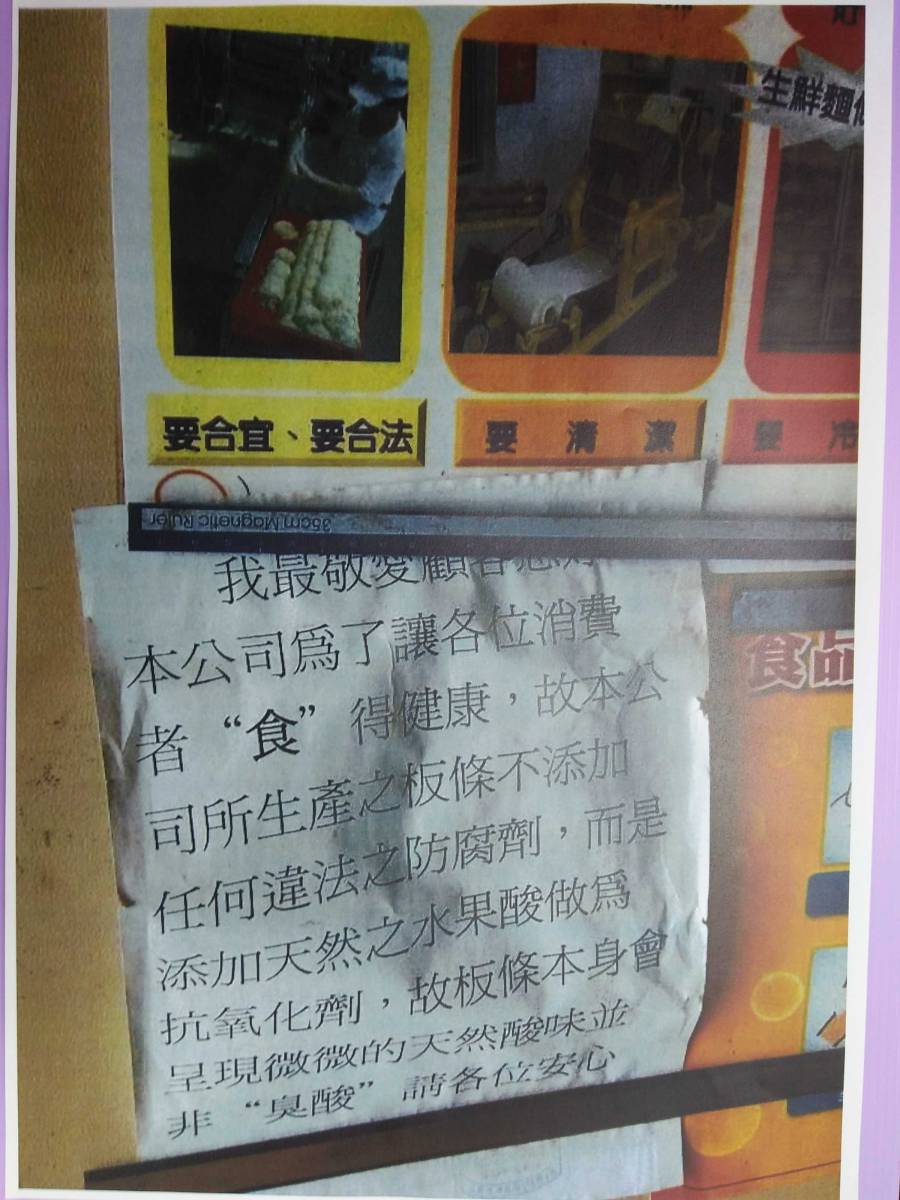 生鮮麵
要合宜、要合法
要清潔
要冷
35cm Magnetic Ruler
我最敬愛顧客您好
本公司爲了讓各位消費
者“食”得健康，故本公
司所生產之板條不添加
任何違法之防腐劑，而是
添加天然之水果酸做爲
抗氧化劑，故板條本身會
呈現微微的天然酸味並
非“臭酸”請各位安心
食品